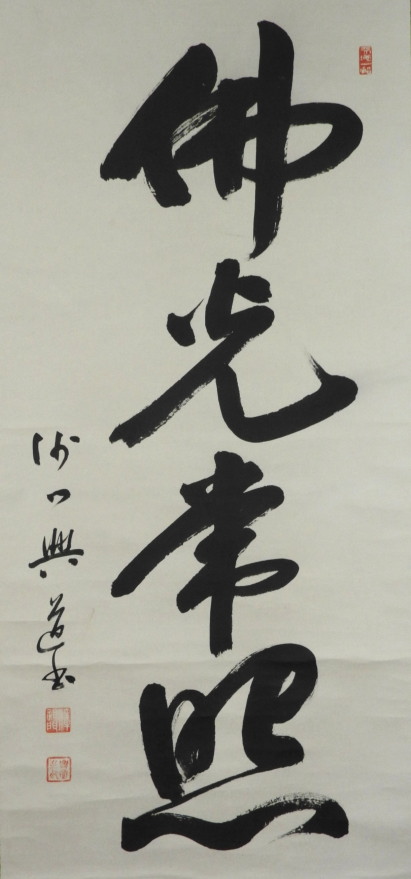 佛光常照
沙門興道書